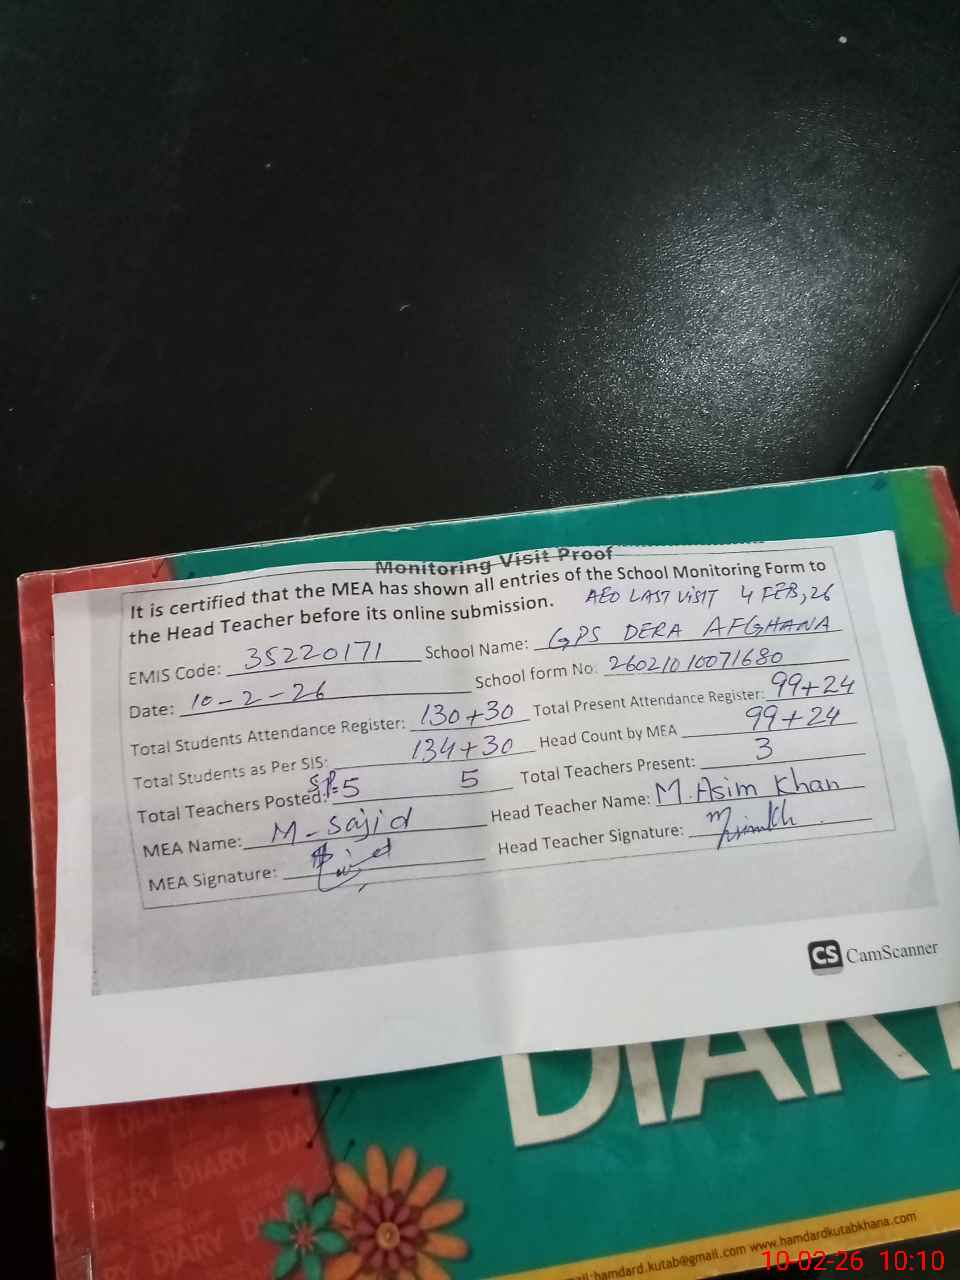 Monitoring Visit Proof
It is certified that the MEA has shown all entries of the School Monitoring Form to
the Head Teacher before its online submission. AEO LAST VISIT 4 FEB, 26
EMIS Code: 35220171 School Name: GPS DERA AFGHANA
Date: 10-2-26 School form No: 26021010071680
Total Students Attendance Register: 130+30 Total Present Attendance Register: 99+24
Total Students as Per SIS: 134+30 Head Count by MEA 99+24
Total Teachers Posted: 5 5 Total Teachers Present: 3
MEA Name: M-Sajid Head Teacher Name: M.Asim Khan
MEA Signature: Head Teacher Signature:
CS CamScanner
DIARY
DIARY DIARY DIA
DIARY DIARY
DIARY
hamdard.kutab@gmail.com www.hamdardkutabkhana.com
10-02-26 10:10